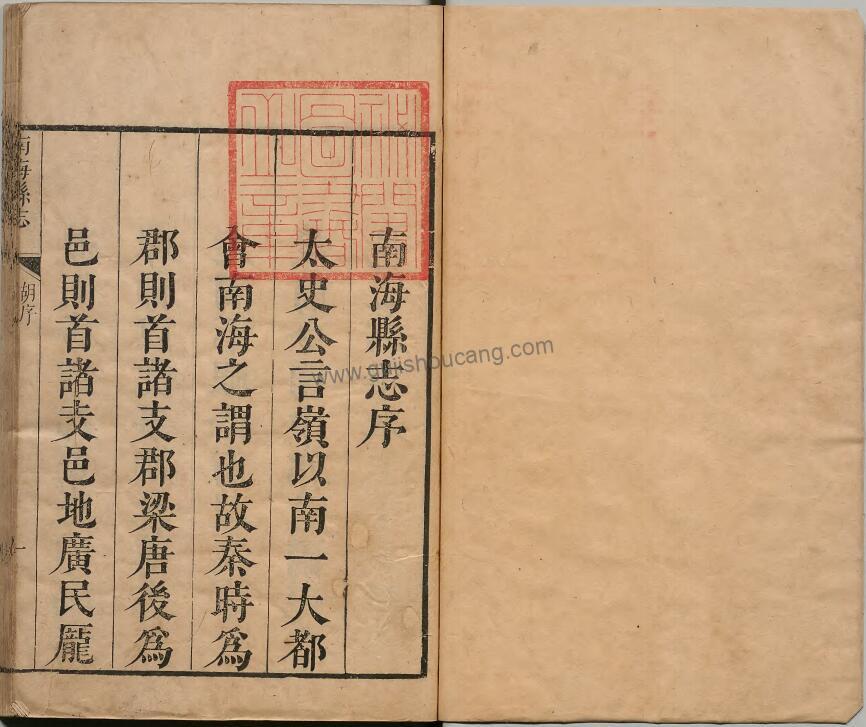 南海縣志序
太史公言嶺以南一大都
會南海之謂也故秦時爲
郡則首諸支郡梁唐後爲
邑則首諸支邑地廣民厖
南海縣志
胡序
一
www.gujishoucang.com